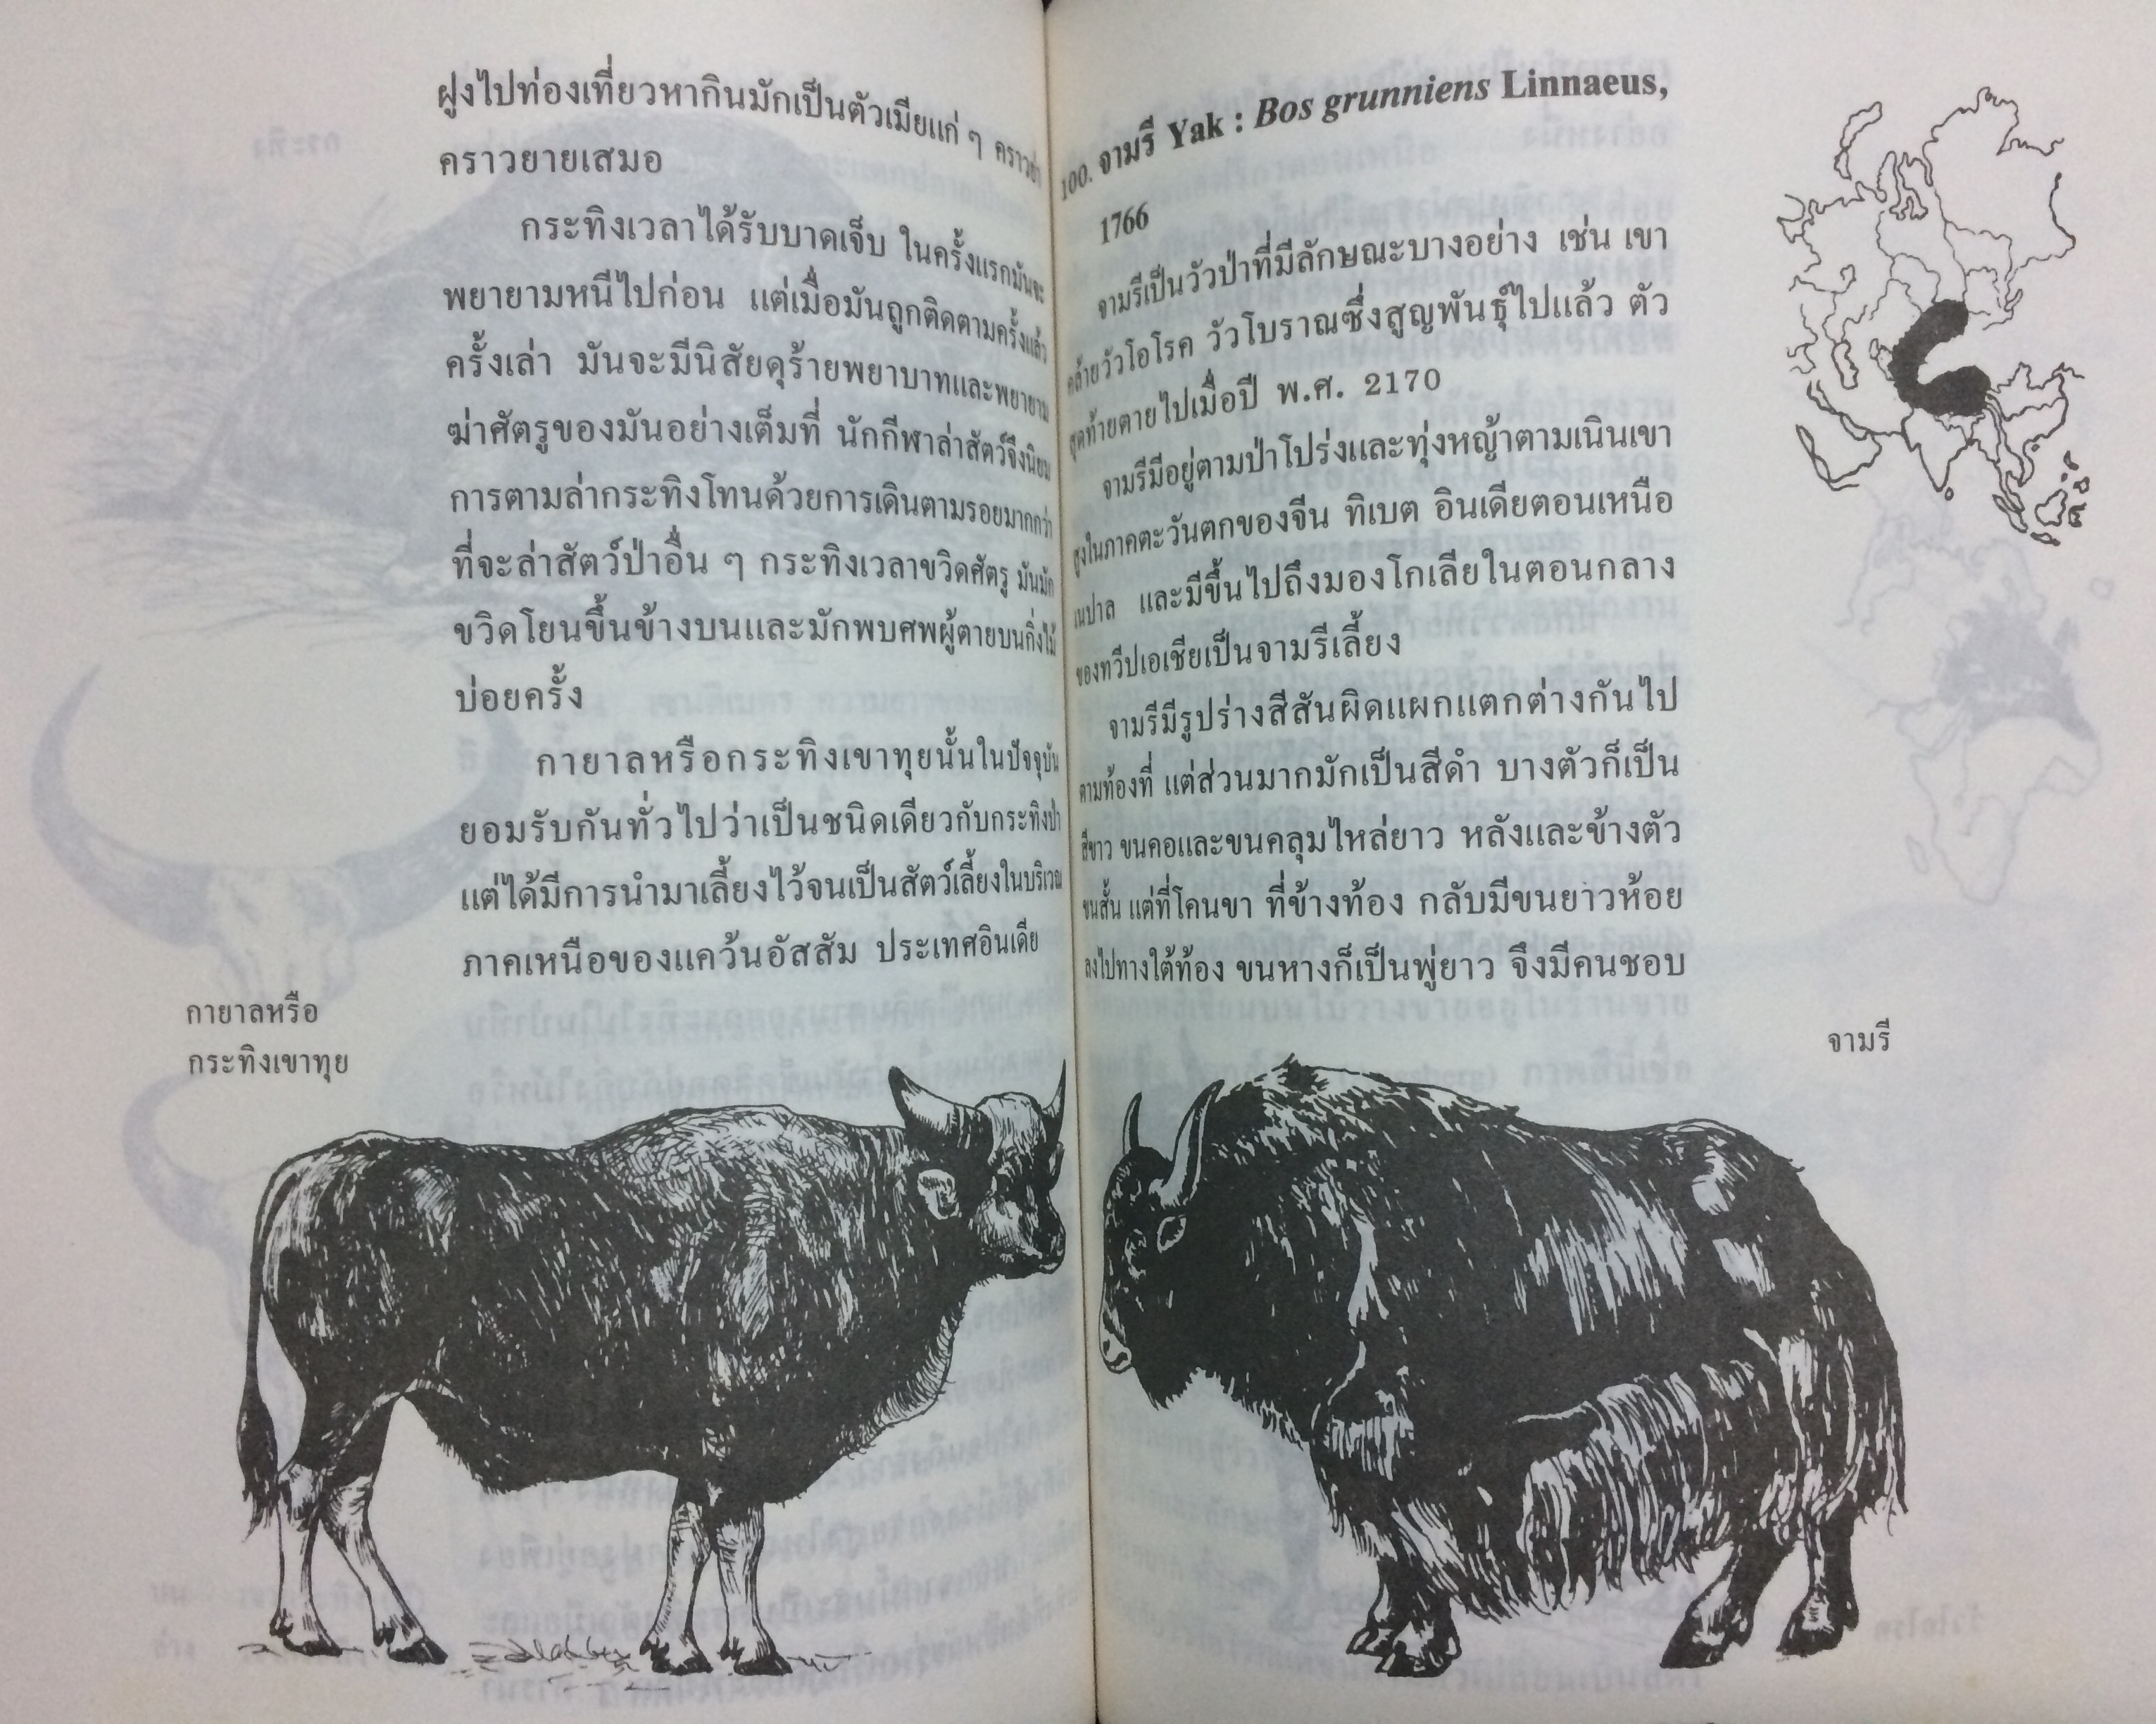 ฝูงไปท่องเที่ยวหากินมักเป็นตัวเมียแก่ ๆ คราวย่า
คราวยายเสมอ
กระทิงเวลาได้รับบาดเจ็บ ในครั้งแรกมันจะ
พยายามหนีไปก่อน แต่เมื่อมันถูกติดตามครั้งแล้ว
ครั้งเล่า มันจะมีนิสัยดุร้ายพยาบาทและพยายาม
ฆ่าศัตรูของมันอย่างเต็มที่ นักกีฬาล่าสัตว์จึงนิยม
การตามล่ากระทิงโทนด้วยการเดินตามรอยมากกว่า
ที่จะล่าสัตว์ป่าอื่น ๆ กระทิงเวลาขวิดศัตรู มันมัก
ขวิดโยนขึ้นข้างบนและมักพบศพผู้ตายบนกิ่งไม้
บ่อยครั้ง
กายาลหรือกระทิงเขาทุยนั้นในปัจจุบัน
ยอมรับกันทั่วไปว่าเป็นชนิดเดียวกับกระทิงป่า
แต่ได้มีการนำมาเลี้ยงไว้จนเป็นสัตว์เลี้ยงในบริเวณ
ภาคเหนือของแคว้นอัสสัม ประเทศอินเดีย
กายาลหรือ
กระทิงเขาทุย
100. จามรี Yak : Bos grunniens Linnaeus,
1766
จามรีเป็นวัวป่าที่มีลักษณะบางอย่าง เช่น เขา
คล้ายวัวโอโรค วัวโบราณซึ่งสูญพันธุ์ไปแล้ว ตัว
สุดท้ายตายไปเมื่อปี พ.ศ. 2170
จามรีมีอยู่ตามป่าโปร่งและทุ่งหญ้าตามเนินเขา
สูงในภาคตะวันตกของจีน ทิเบต อินเดียตอนเหนือ
เนปาล และมีขึ้นไปถึงมองโกเลียในตอนกลาง
ของทวีปเอเชียเป็นจามรีเลี้ยง
จามรีมีรูปร่างสีสันผิดแผกแตกต่างกันไป
ตามท้องที่ แต่ส่วนมากมักเป็นสีดำ บางตัวก็เป็น
สีขาว ขนคอและขนคลุมไหล่ยาว หลังและข้างตัว
ขนสั้น แต่ที่โคนขา ที่ข้างท้อง กลับมีขนยาวห้อย
ลงไปทางใต้ท้อง ขนหางก็เป็นพู่ยาว จึงมีคนชอบ
จามรี